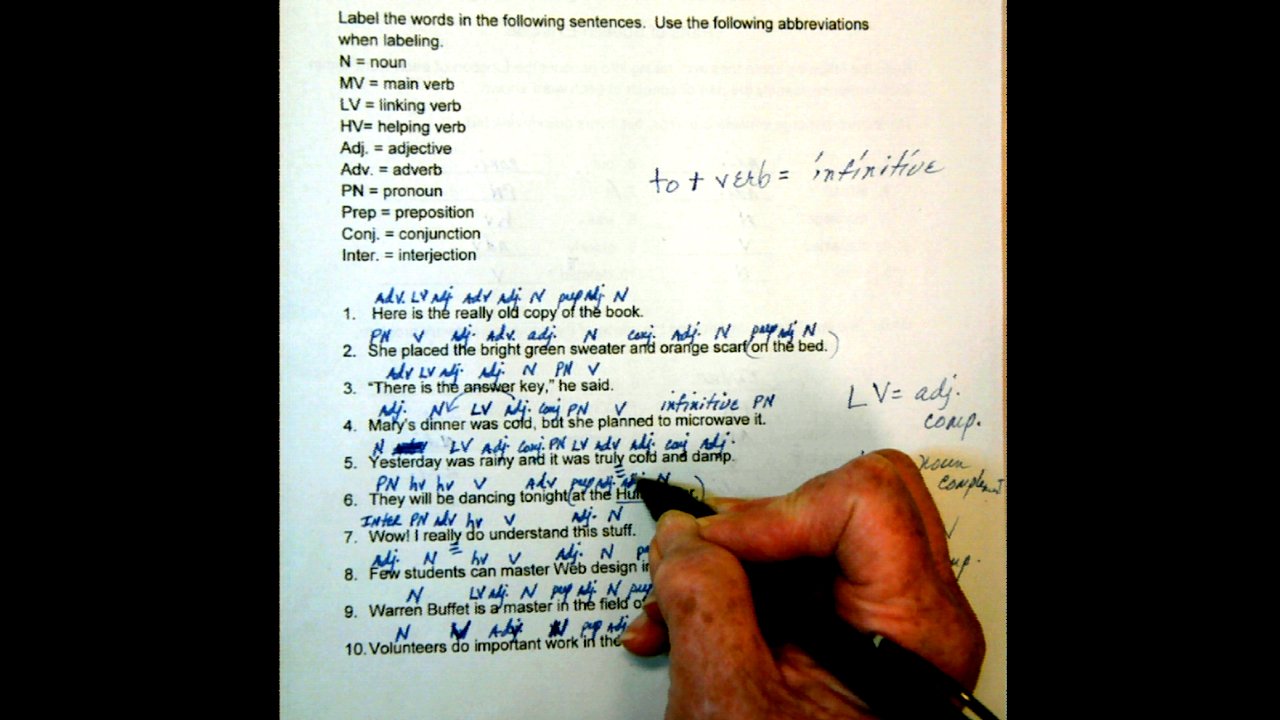 Label the words in the following sentences. Use the following abbreviations
when labeling.
N = noun
MV = main verb
LV = linking verb
HV= helping verb
Adj. = adjective
Adv. = adverb
PN = pronoun
Prep = preposition
Conj. = conjunction
Inter. = interjection
to + verb = infinitive
Adv. LV adj. Adv adj. N prep adj. N
1. Here is the really old copy of the book.
PN V adj. Adv. adj. N conj. Adj. N prep adj N
2. She placed the bright green sweater and orange scarf (on the bed.)
Adv LV adj. Adj. N PN V
3. “There is the answer key,” he said.
LV = adj.
comp.
Adj. N LV adj. conj PN V infinitive PN
4. Mary's dinner was cold, but she planned to microwave it.
N LV Adj. conj. PN LV adv adj. conj adj.
5. Yesterday was rainy and it was truly cold and damp.
noun
PN hv hv V Adv prep adj. adj. N
6. They will be dancing tonight (at the
INTER PN adv hv V adj. N
7. Wow! I really do understand this stuff.
Adj. N hv V Adj. N
8. Few students can master Web design
N LV adj. N prep adj. N prep
9. Warren Buffet is a master in the field
N V Adj. N prep adj
10. Volunteers do important work in the